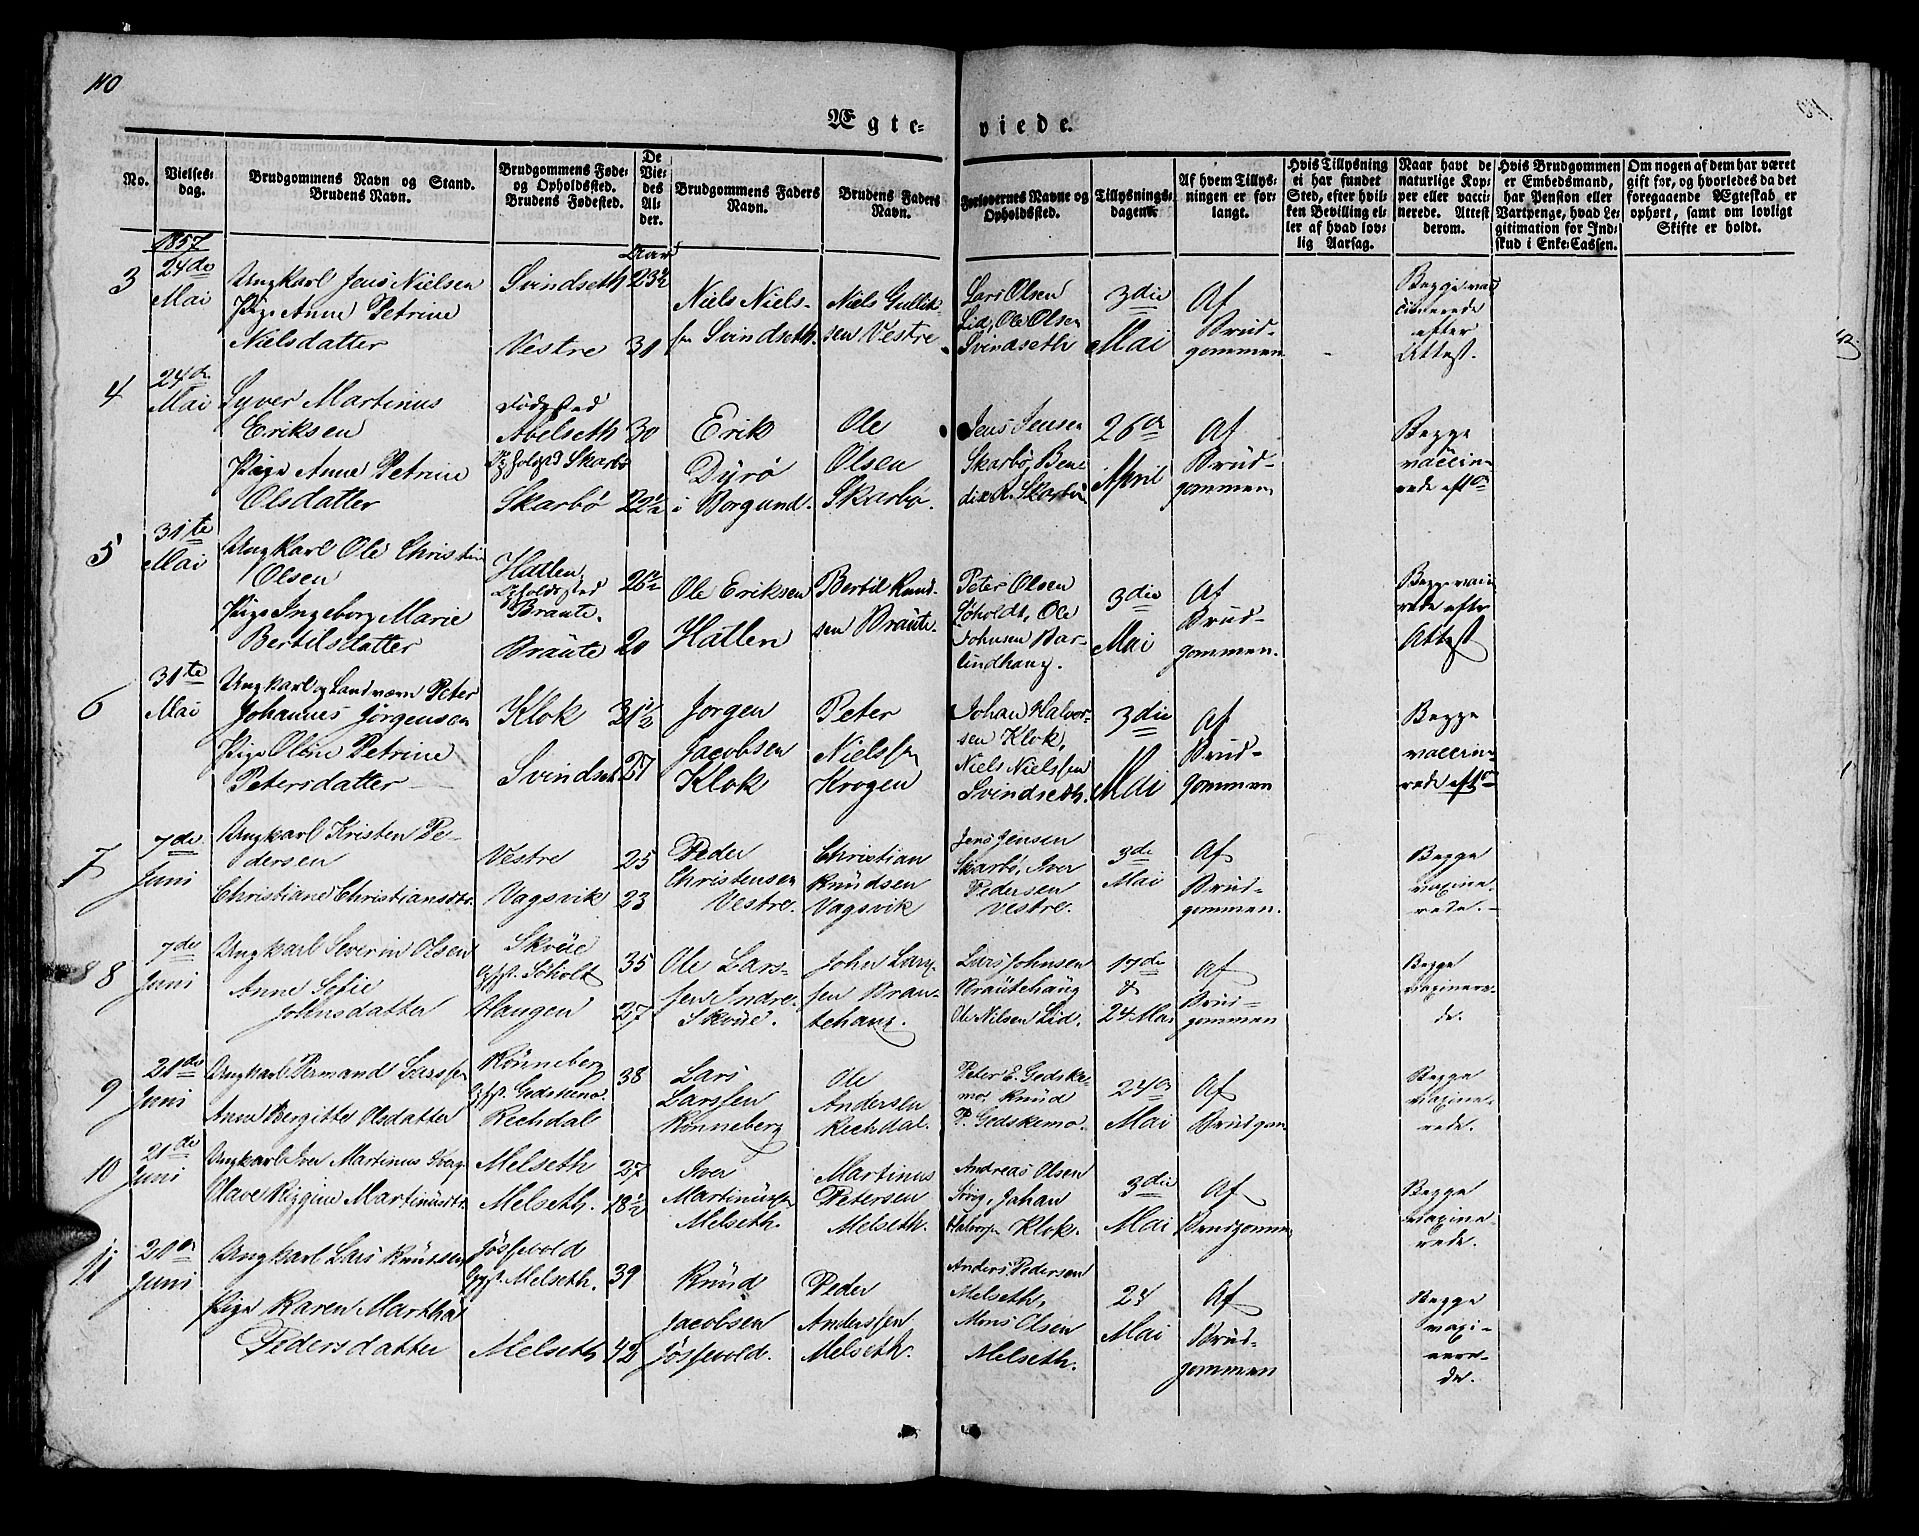 110
Ægte-viede.
No.
Vielses-
dag.
Brudgommens Navn og Stand.
Brudens Navn.
Brudgommens Føde-
og Opholdsted.
Brudens Fødested.
De
Vie-
des
Al-
der.
Brudgommens Faders
Navn.
Brudens Faders
Navn.
Forlovernes Navne og
Opholdsted.
Tillysnings-
dagene.
Af hvem Tillys-
ningen er for-
langt.
Hvis Tillysning
ei har fundet
Sted, efter hvil-
ken Bevilling el-
ler af hvad lov-
lig Aarsag.
Naar havt de
naturlige Kop-
per eller vacci-
nerede. Attest
derom.
Hvis Brudgommen
er Embedsmand,
har Pension eller
Vartpenge, hvad Le-
gitimation for Ind-
skud i Enke-Cassen.
Om nogen af dem har været
gift før, og hvorledes da det
foregaaende Ægteskab er
ophørt, samt om lovligt
Skifte er holdt.
1857
Aar
3
24de
Mai
Ungkarl Jens Nielsen
Pige Anne Petrine
Nielsdatter
Svindseth
Vestre
23½
31
Niels Niels-
sen Svindseth.
Niels Gullik-
sen Vestre
Lars Olsen
Lid, Ole Olsen
Svindseth
3die
Mai
Af
Brud-
gommen
Begge vac
cinerede
efter
Attest.
4
24de
Mai
Syver Martinus
Eriksen
Pige Anne Petrine
Olsdatter
Fødested
Abelseth
Opholdsted Skarbø
Skarbø
30
22½
Erik
Dyrø
i Borgund.
Ole
Olsen
Skarbø.
Jens Jensen
Skarbø, Bene
dix R. Skarbø
26de
April
Af
Brud-
gommen
Begge
vaccin-
rede eft
5
31te
Mai
Ungkarl Ole Christian
Olsen
Pige Ingeborg Marie
Bertilsdatter
Hatlen
Opholdsted
Braute.
Braute
26½
20
Ole Eriksen
Hatlen
Bertil Knud-
sen Braute.
Peter Olsen
Søholdt, Ole
Johnsen Bar-
lindhaug.
3die
Mai
Af
Brud-
gommen.
Begge vaccine
rede efter
Attest
6
31te
Mai
Ungkarl og Landværn Peter
Johannes Jørgensen
Pige Oline Petrine
Petersdatter
Klok
Svindset
31½
27
Jørgen
Jacobsen
Klok
Peter
Nielssen
Krogen
Johan Halvor-
sen Klok,
Niels Nielssen
Svindseth.
3die
Mai
Af
Brud-
gommen
Begge
vaccin-
rede eft
7
7de
Juni
Ungkarl Kristen Pe-
dersen
Christiane Christiansdtr.
Vestre
Vagsvik
25
23
Peder
Christensen
Vestre.
Christian
Knudsen
Vagsvik
Jens Jensen
Skarbø, Iver
Pedersen
Vestre.
3de
Mai
Af
Brud-
gommen.
Begge
vaxine-
rede.
8
7de
Juni
Ungkarl Severin Olsen
Anne Sofie
Johnsdatter
Skvue
Søholt
Haugen
35
27
Ole Lars-
sen Indre
Skvue.
John Lars-
sen Brau-
tehaug.
Lars Johnsen
Brautehaug
Ole Nilsen Lid.
17de
&
24 Mai
Af
Brud-
gommen
Begge
vaxinere-
de.
9
21de
Juni
Ungkarl Permand Larssen
Anne Bergitte Olsdatter
Rønneberg
Rechdal
38
Lars
Larssen
Rønneberg
Ole
Andersen
Rechdal.
Peter E. Gedske-
mo, Knud
P. Gedskemo.
24de
Mai
Af
Brudgom
Begge
vaxine-
rede.
10
21de
Juni
Ungkarl Iver Martinus Ivers
Olave Regine Martinusdtr.
Melseth
Melseth.
27
18½
Iver
Martinussen
Melseth.
Martinus
Petersen
Melseth.
Andreas Olsen
Johan
Halvors Klok.
3die
Mai
Af
Brudgommen
Begge
vaxine-
rede.
11
Juni
Ungkarl Lars Knutsen
Pige Karen Martha
Pedersdatter
Jøssevold
Melseth.
Melseth
39
42
Knud
Jacobsen
Jøssevold.
Peder
Anderssen
Melseth.
Anders Pedersen
Melseth,
Mons Olsen
Melseth.
24
Mai
Af
Brud-
gommen
Begge
vaxi-
nere-
de.